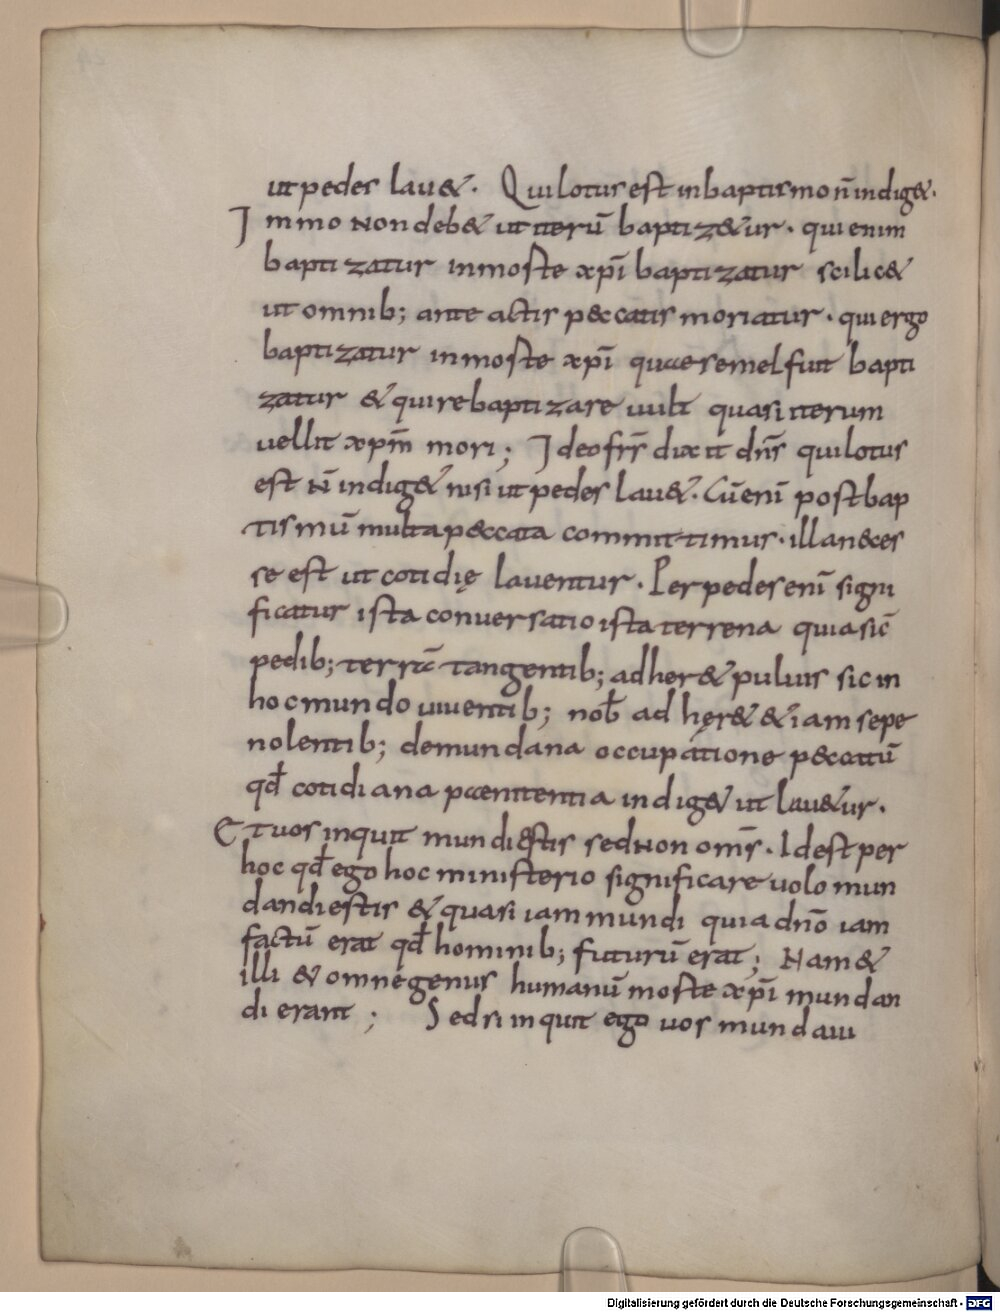 ut pedes lau&. Qui lotus est in baptismo n̄ indig&.
Immo non deb& ut iterū baptiz&ur. qui enim
baptizatur in morte xp̄i baptizatur scilic&
ut omnib; ante actis peccatis moriatur. qui ergo
baptizatur in morte xp̄i quae semel fuit bapti
zatur & qui rebaptizare uult quasi iterum
uellit xp̄m mori; Ideo frr̄ dixit dn̄s qui lotus
est n̄ indig& nisi ut pedes lau&. Cū enī post bap
tismū multa peccata committimus. illa neces
se est ut cotidię lauentur. Per pedes enī signi
ficatur ista conuersatio ista terrena quia sic̄
pedib; terrā tangentib; adher& puluis sic in
hoc mundo uiuentib; nob̄ ad hęr& & iam sepe
nolentib; de mundana occupatione peccatū
qd̄ cotidiana paenitentia indig& ut lau&ur.
Et uos inquit mundi estis sed non om̄s. Id est per
hoc qd̄ ego hoc ministerio significare uolo mun
dandi estis & quasi iam mundi quia dn̄o iam
factū erat qd̄ hominib; futurū erat; Nam &
illi & omne genus humanū morte xp̄i mundan
di erant; Sed si inquit ego uos mundaui
Digitalisierung gefördert durch die Deutsche Forschungsgemeinschaft - DFG